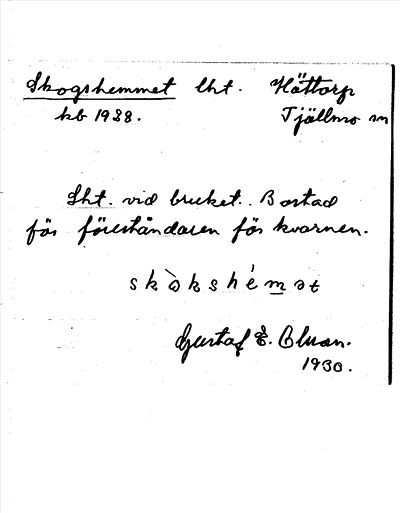 Skogshemmet lht. Hättorp
kb 1938. Tjällmo sn
Lht. vid bruket. Bostad
för föreståndaren för kvarnen.
skòkshémət
Gustaf E.
1930.